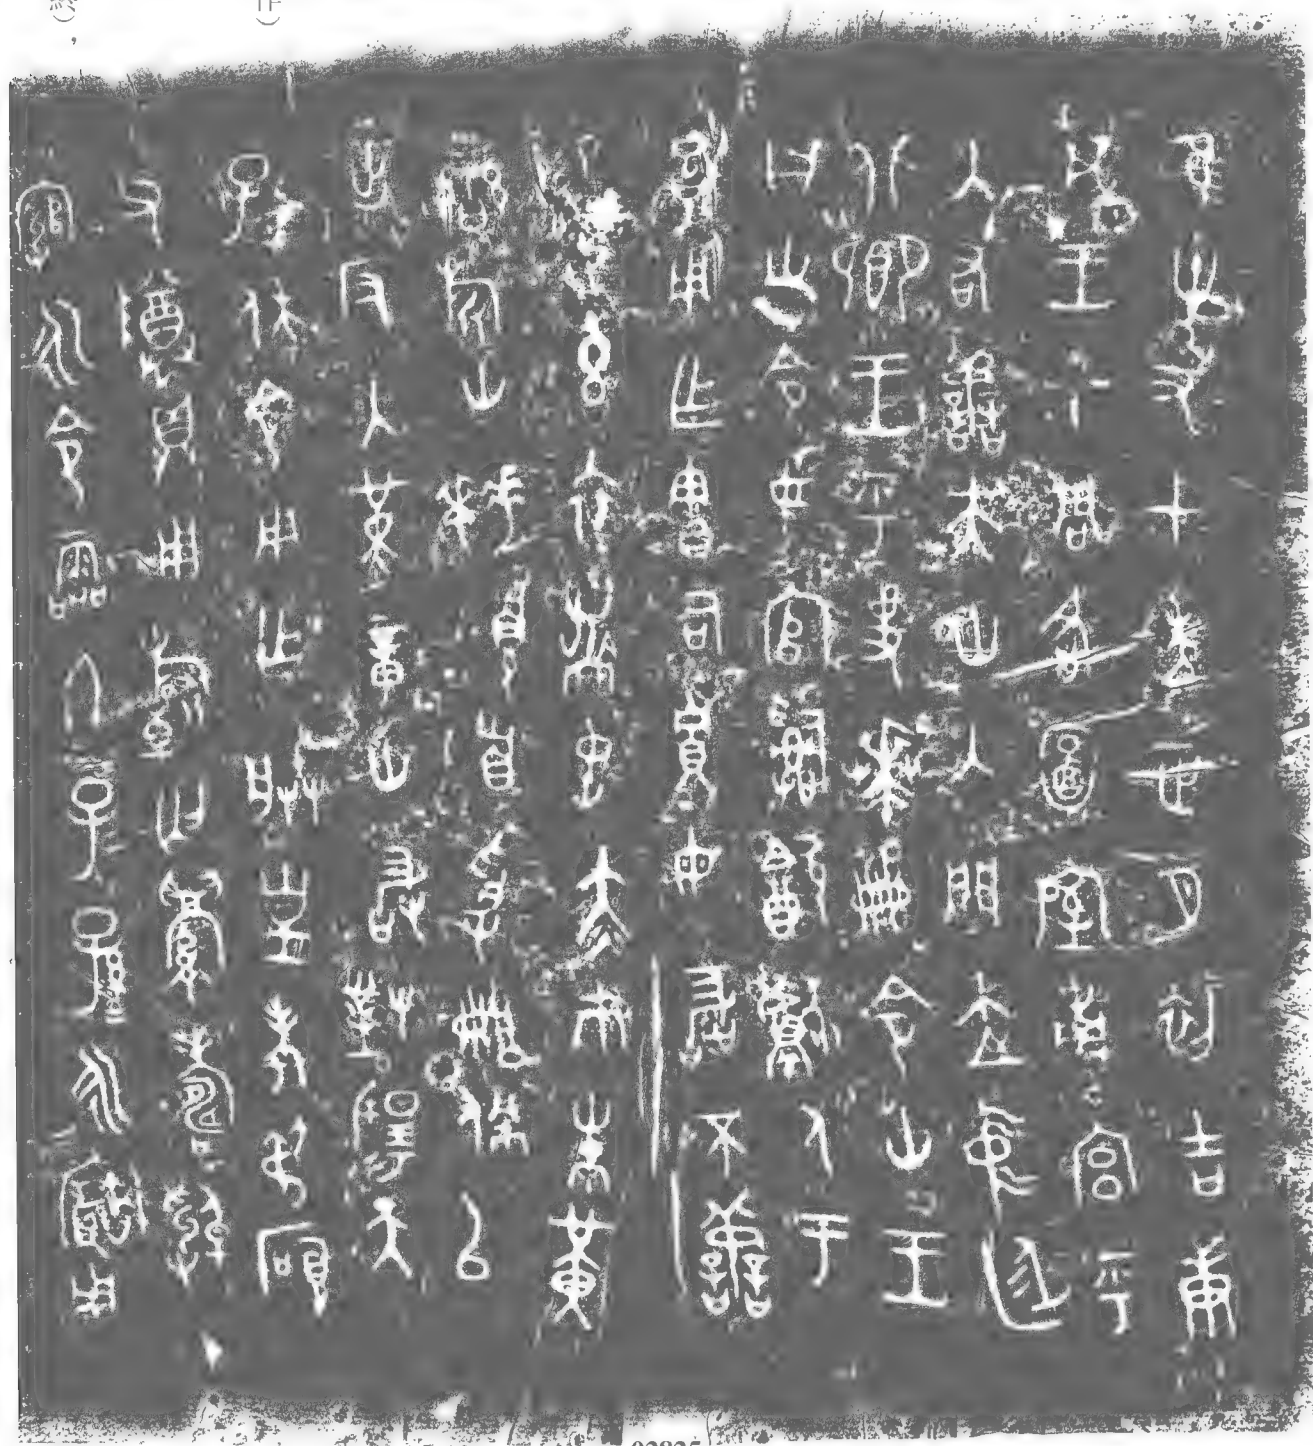 隹卅又七年正月初吉庚
戌王才周各圖室南宮乎
入右善夫山入門立中廷北
鄉王乎史𠦪冊令山王
曰山令女官𤔲飲獻人于
𡆥用乍憲司貯毋敢不善
易女玄衣黹屯赤巿朱黃
䜌旂山拜稽首受冊佩以
出反入堇章山敢對揚天
子休令用乍朕皇考弔碩
父尊鼎用祈匄眉壽綽
綰永令霝冬子子孫孫永寶用